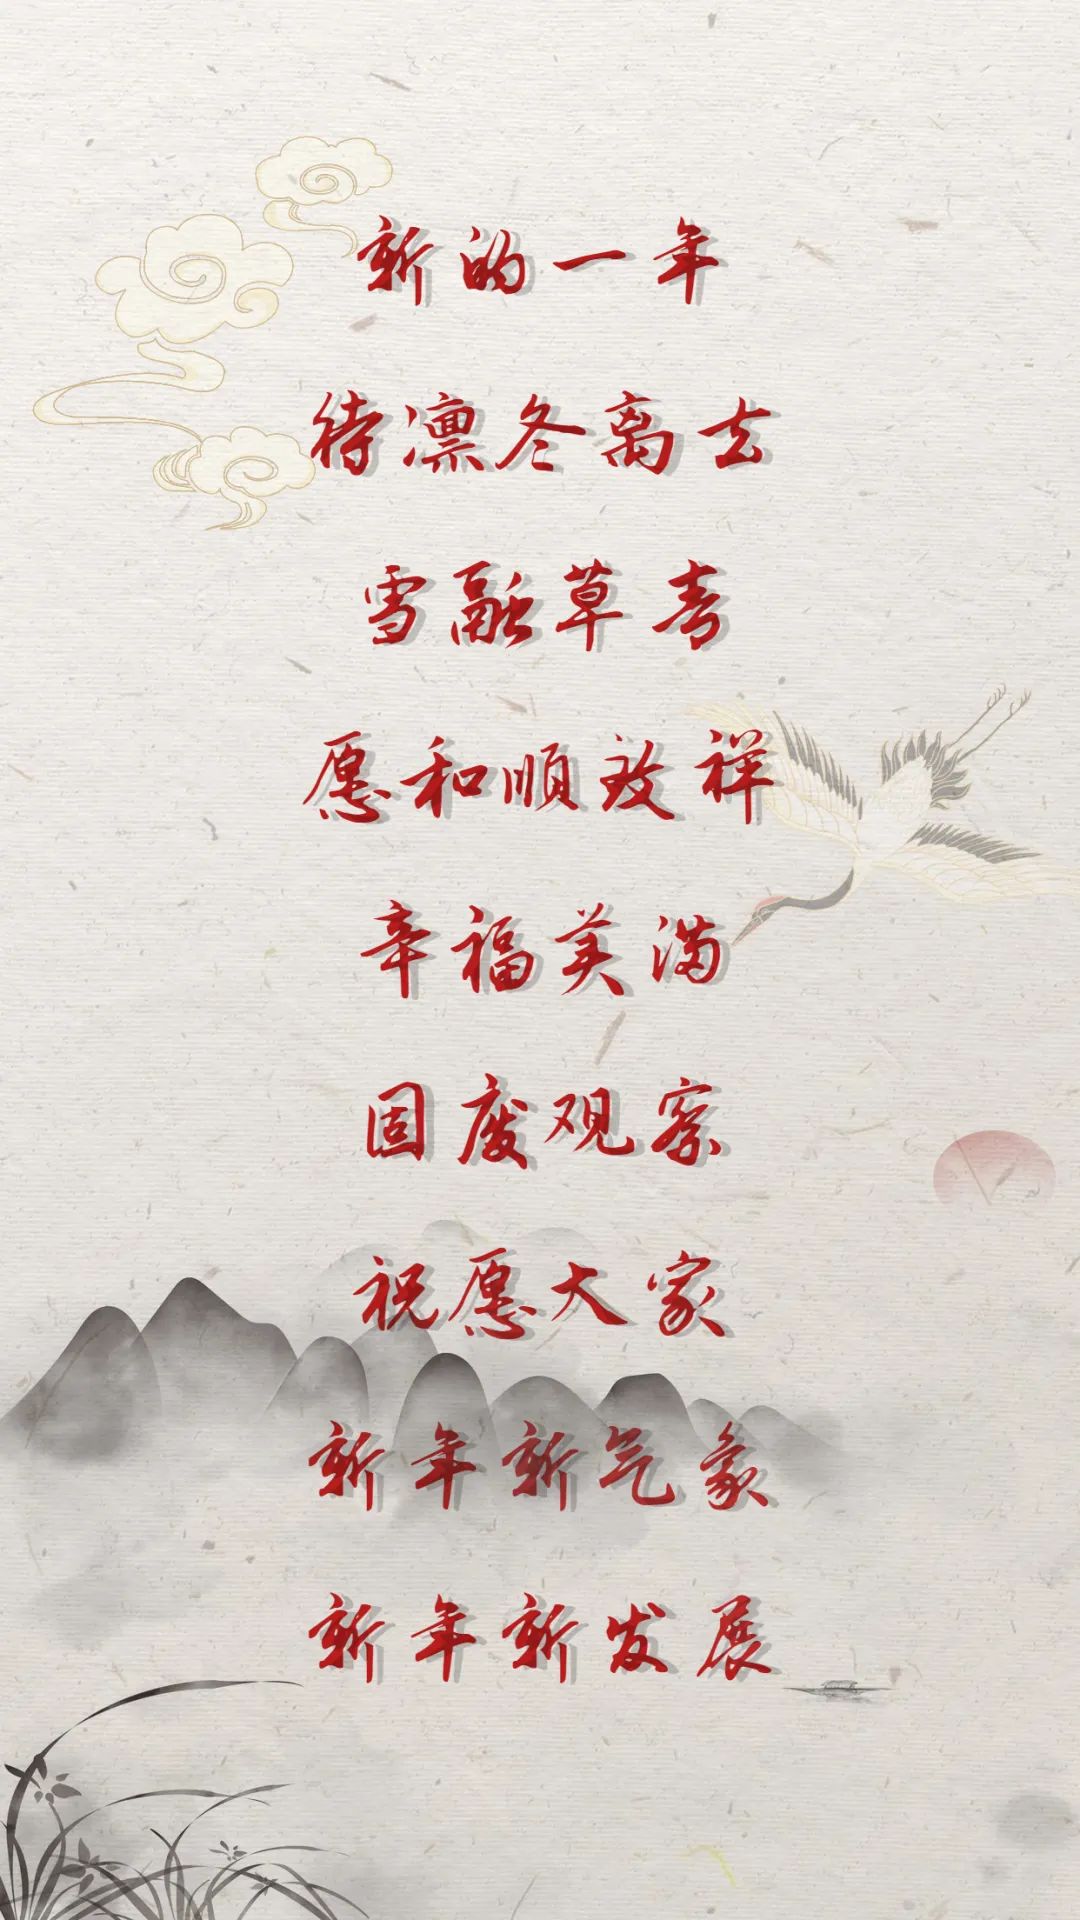 新的一年
待凛冬离去
雪融草青
愿和顺致祥
幸福美满
固废观察
祝愿大家
新年新气象
新年新发展